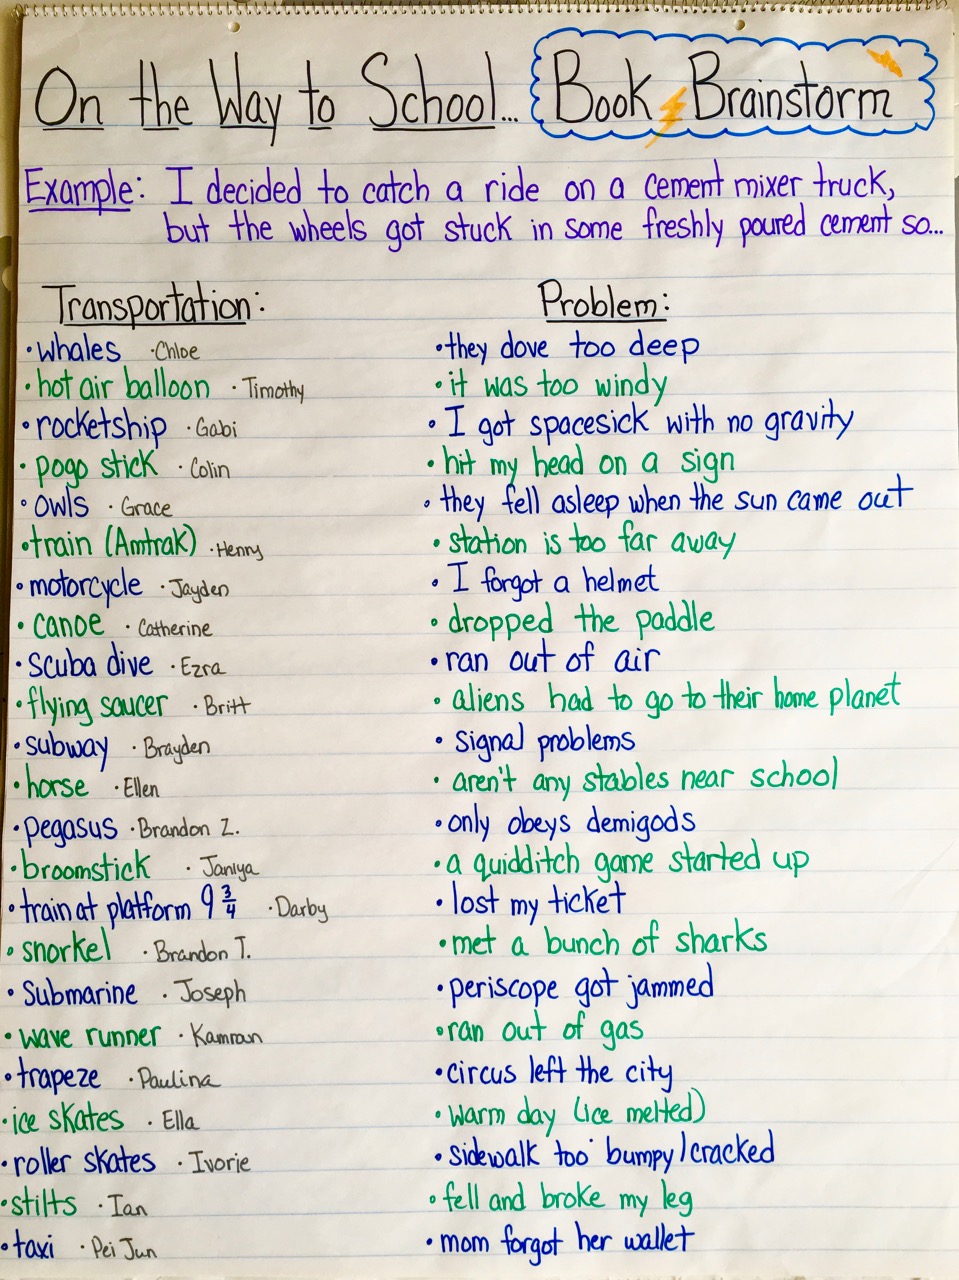 On the Way to School... Book Brainstorm
Example: I decided to catch a ride on a cement mixer truck,
but the wheels got stuck in some freshly poured cement so...
Transportation: Problem:
•whales •Chloe •they dove too deep
•hot air balloon •Timothy •it was too windy
•rocketship •Gabi •I got spacesick with no gravity
•pogo stick •Colin •hit my head on a sign
•owls •Grace •they fell asleep when the sun came out
•train (Amtrak) •Henry •station is too far away
•motorcycle •Jayden •I forgot a helmet
•canoe •Catherine •dropped the paddle
•scuba dive •Ezra •ran out of air
•flying saucer •Britt •aliens had to go to their home planet
•subway •Brayden •signal problems
•horse •Ellen •aren't any stables near school
•pegasus •Brandon Z. •only obeys demigods
•broomstick •Janiya •a quidditch game started up
•train at platform 9 3/4 •Darby •lost my ticket
•snorkel •Brandon T. •met a bunch of sharks
•Submarine •Joseph •periscope got jammed
•wave runner •Kamran •ran out of gas
•trapeze •Paulina •circus left the city
•ice skates •Ella •warm day (ice melted)
•roller skates •Ivorie •sidewalk too bumpy/cracked
•stilts •Ian •fell and broke my leg
•taxi •Pei Jun •mom forgot her wallet